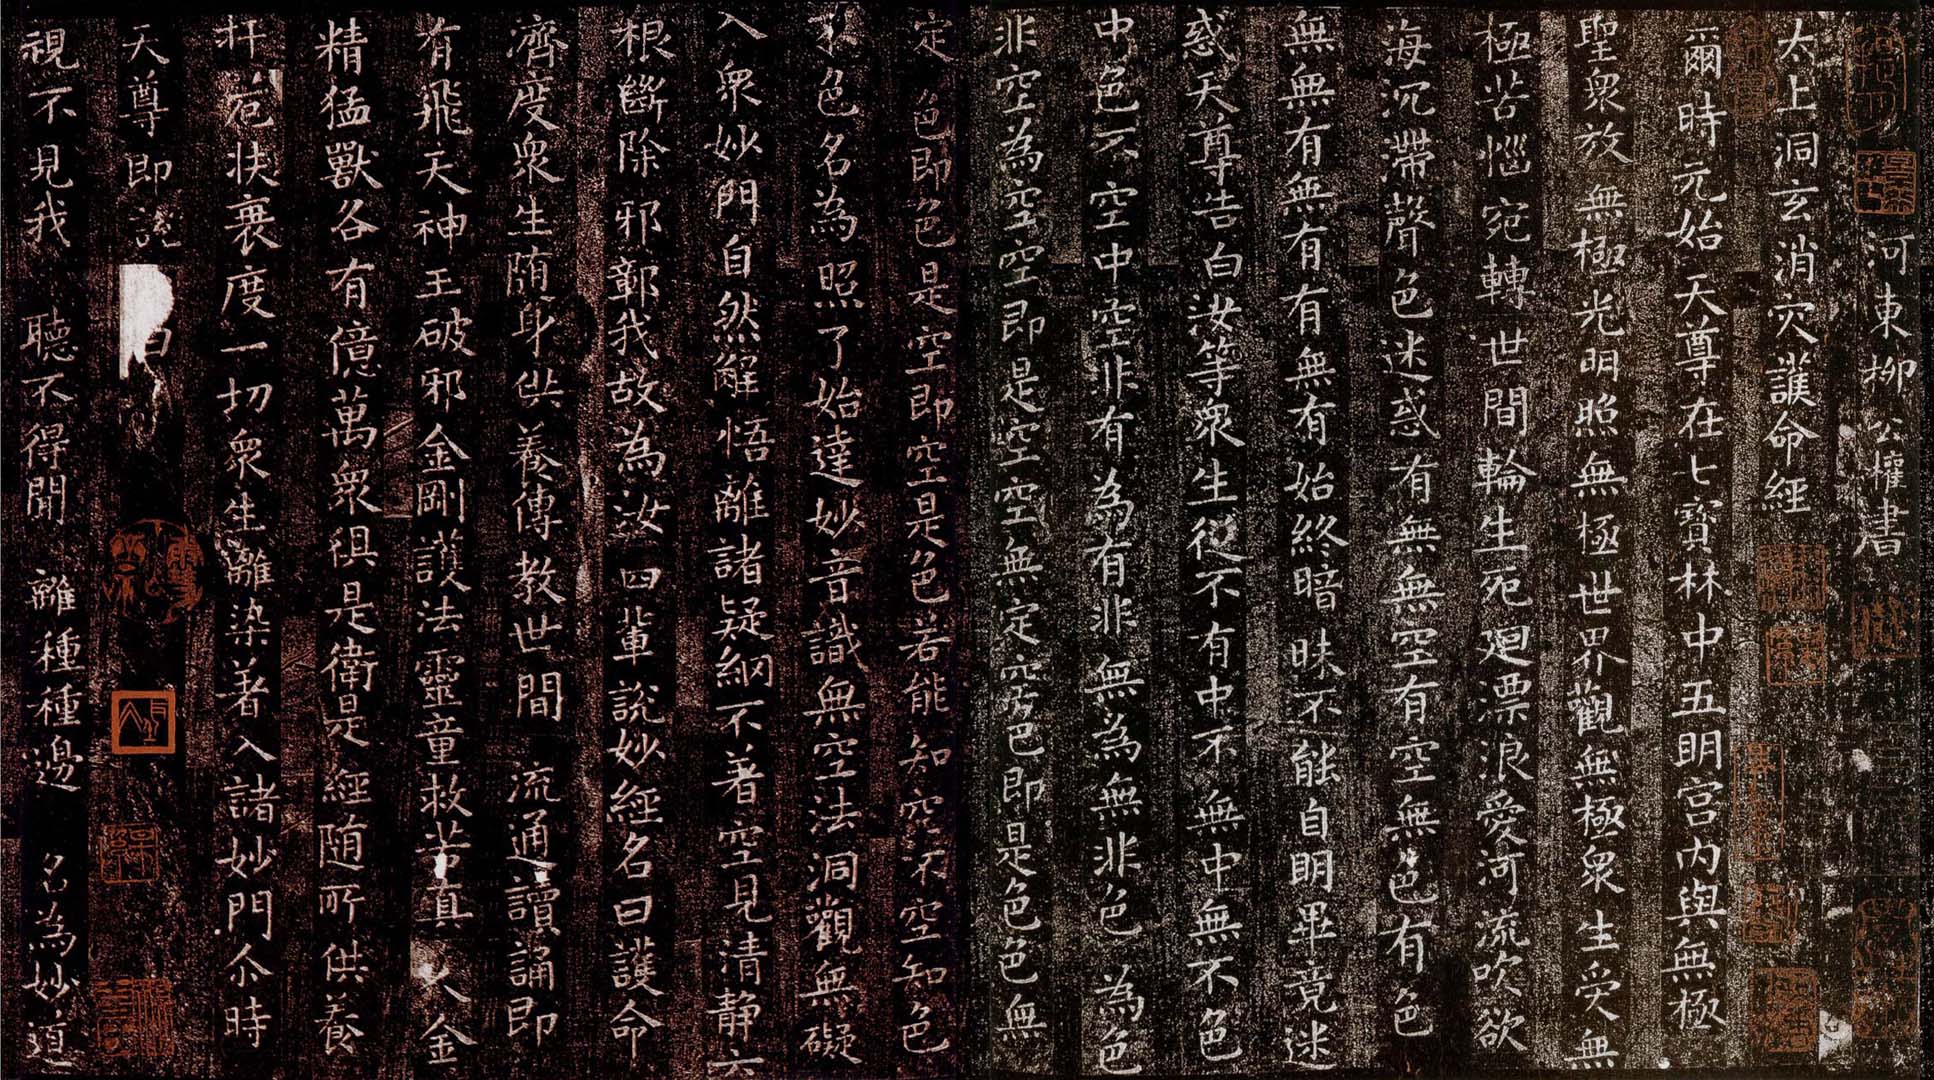 河東柳公權書
太上洞玄消灾護命經
爾時元始天尊在七寶林中五明宮内與無極
聖衆放無極光明照無極世界觀無極衆生受無
極苦惱宛轉世間輪生死廻漂浪愛河流吹欲
海沉滯聲色迷惑有無無空有空無色有色
無無有無有有無有始終暗昧不能自明畢竟迷
惑天尊告白汝等衆生從不有中不無中無不色
中色不空中空非有為有非無為無非色為色
非空為空空即是空空無定空色即是色色無
定色即色是空即空是色若能知空不空知色
不色名為照了始達妙音識無空法洞觀無礙
入衆妙門自然解悟離諸疑網不著空見清靜六
根斷除邪鄣我故為汝四輩說妙經名曰護命
濟度衆生随身供養傳教世間流通讀誦即
有飛天神王破邪金剛護法靈童救苦真人金
精猛獸各有億萬衆俱是衛是經随所供養
扞厄扶衰度一切衆生離染著入諸妙門尒時
天尊即說曰
視不見我聽不得聞離種種邊名為妙道